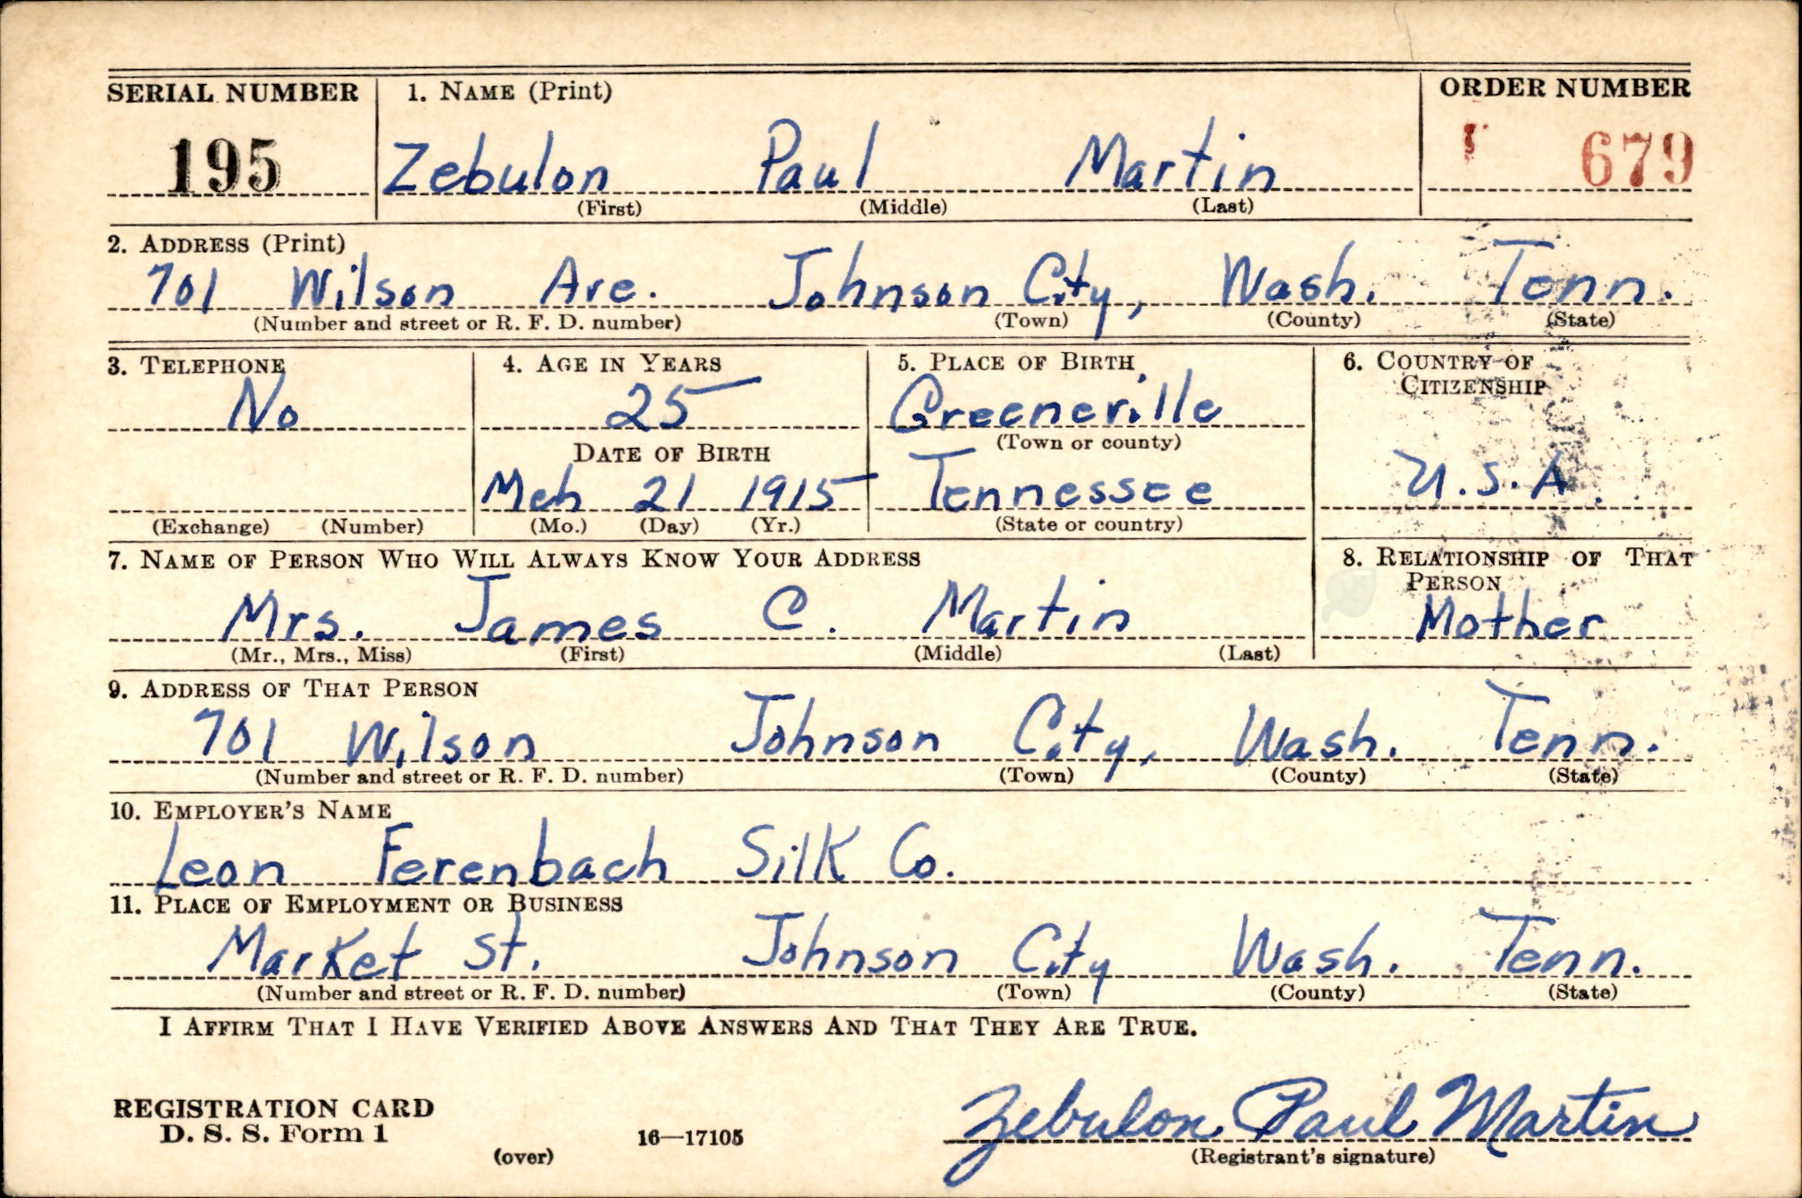 SERIAL NUMBER 1. NAME (Print) ORDER NUMBER
195 Zebulon Paul Martin 679
(First) (Middle) (Last)
2. ADDRESS (Print)
701 Wilson Ave. Johnson City, Wash. Tenn.
(Number and street or R. F. D. number) (Town) (County) (State)
3. TELEPHONE 4. AGE IN YEARS 5. PLACE OF BIRTH 6. COUNTRY OF
CITIZENSHIP
No 25 Greeneville
(Town or county)
DATE OF BIRTH
Mch 21 1915 Tennessee U.S.A.
(Exchange) (Number) (Mo.) (Day) (Yr.) (State or country)
7. NAME OF PERSON WHO WILL ALWAYS KNOW YOUR ADDRESS 8. RELATIONSHIP OF THAT
PERSON
Mrs. James C. Martin Mother
(Mr., Mrs., Miss) (First) (Middle) (Last)
9. ADDRESS OF THAT PERSON
701 Wilson Johnson City, Wash. Tenn.
(Number and street or R. F. D. number) (Town) (County) (State)
10. EMPLOYER'S NAME
Leon Ferenbach Silk Co.
11. PLACE OF EMPLOYMENT OR BUSINESS
Market St. Johnson City Wash. Tenn.
(Number and street or R. F. D. number) (Town) (County) (State)
I AFFIRM THAT I HAVE VERIFIED ABOVE ANSWERS AND THAT THEY ARE TRUE.
REGISTRATION CARD
D. S. S. Form 1 16—17105 Zebulon Paul Martin
(over) (Registrant's signature)